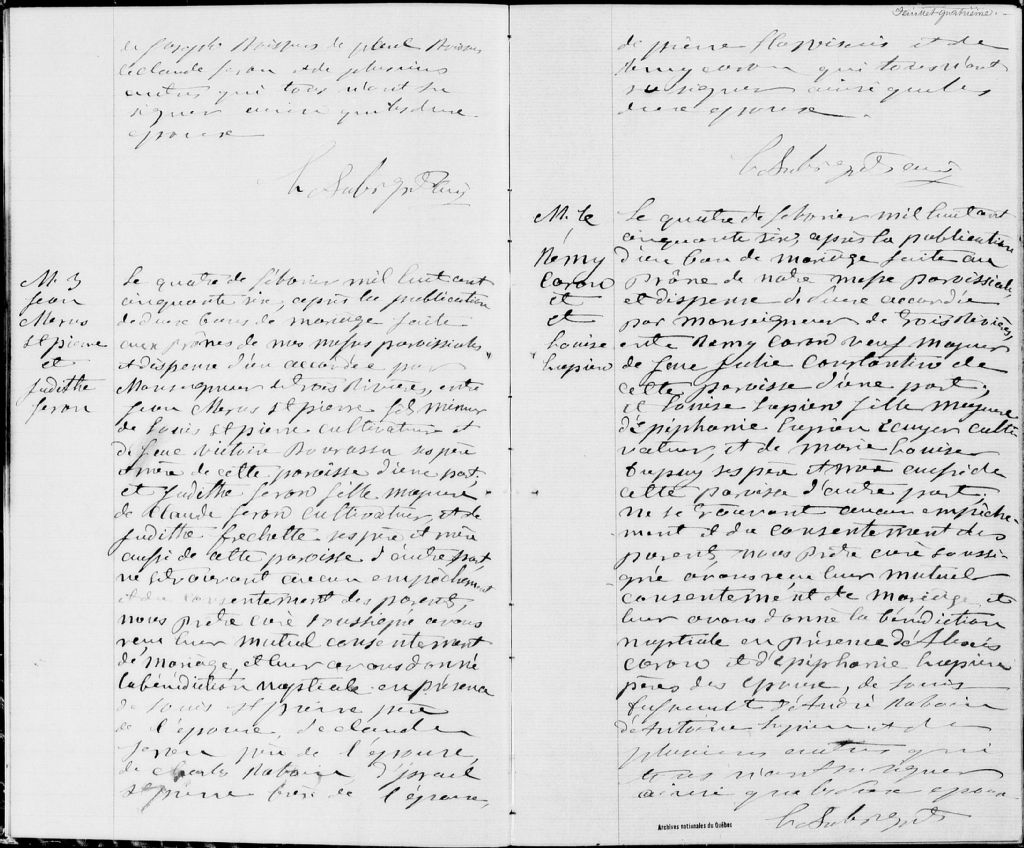 de Joseph Boisvers de pleul Boisvers
de claude feron et de plusieurs
autres qui tous n'ont su
signer ainsi que les deux
epoux
M. 3
Jean
Maras
St pierre
et
Judithe
feron
Le quatre de février mil huit cent
cinquante six, après la publication
de deux bans de mariage faite
aux prônes de nos messes paroissiales
et dispense d'un accordée par
Monseigneur de trois Rivières, entre
Jean Maras St pierre fils mineur
de Louis St pierre cultivateur et
de feue victoire Bourassa ses père
et mère de cette paroisse d'une part;
et Judithe feron fille majeure
de Claude feron cultivateur, et de
Judithe frechette ses père et mère
aussi de cette paroisse d'autre part,
ne se trouvant aucun empêchement
et du consentement des parents,
nous prêtre curé soussigné avons
reçu leur mutuel consentement
de mariage, et leur avons donné
la bénédiction nuptiale en présence
de Louis St pierre père
de l'époux, de claude
feron père de l'épouse,
de Charles Rabouin, d'israel
St pierre frère de l'époux,
Feuillet quatrième.
de pierre et de
Remy caron qui tous n'ont
su signer ainsi que les
deux epoux.
M. 4e
Rémy
Caron
et
et
Louise
Lupien
Le quatre de février mil huit cent
cinquante six, après la publication
d'un ban de mariage faite au
prône de notre messe paroissiale,
et dispense de deux accordée
par Monseigneur de Trois Rivières,
entre Remy Caron veuf majeur
de feue Julie Constantino de
cette paroisse d'une part,
et Louise Lupien fille majeure
d'Epiphanie Lupien Ecuyer culti
vateur, et de marie Louise
Dupuy ses père et mère aussi de
cette paroisse d'autre part,
ne se trouvant aucun empêche
ment et du consentement des
parents, nous prêtre curé soussi
gné avons reçu leur mutuel
consentement de mariage et
leur avons donné la bénédiction
nuptiale en présence d'Alexis
Caron et d'épiphanie Lupien
pères des epoux, de Louis
d'André Rabouin
d'Antoine Lupien et de
plusieurs autres qui
tous n'ont su signer
ainsi que les deux epoux
Archives nationales du Québec